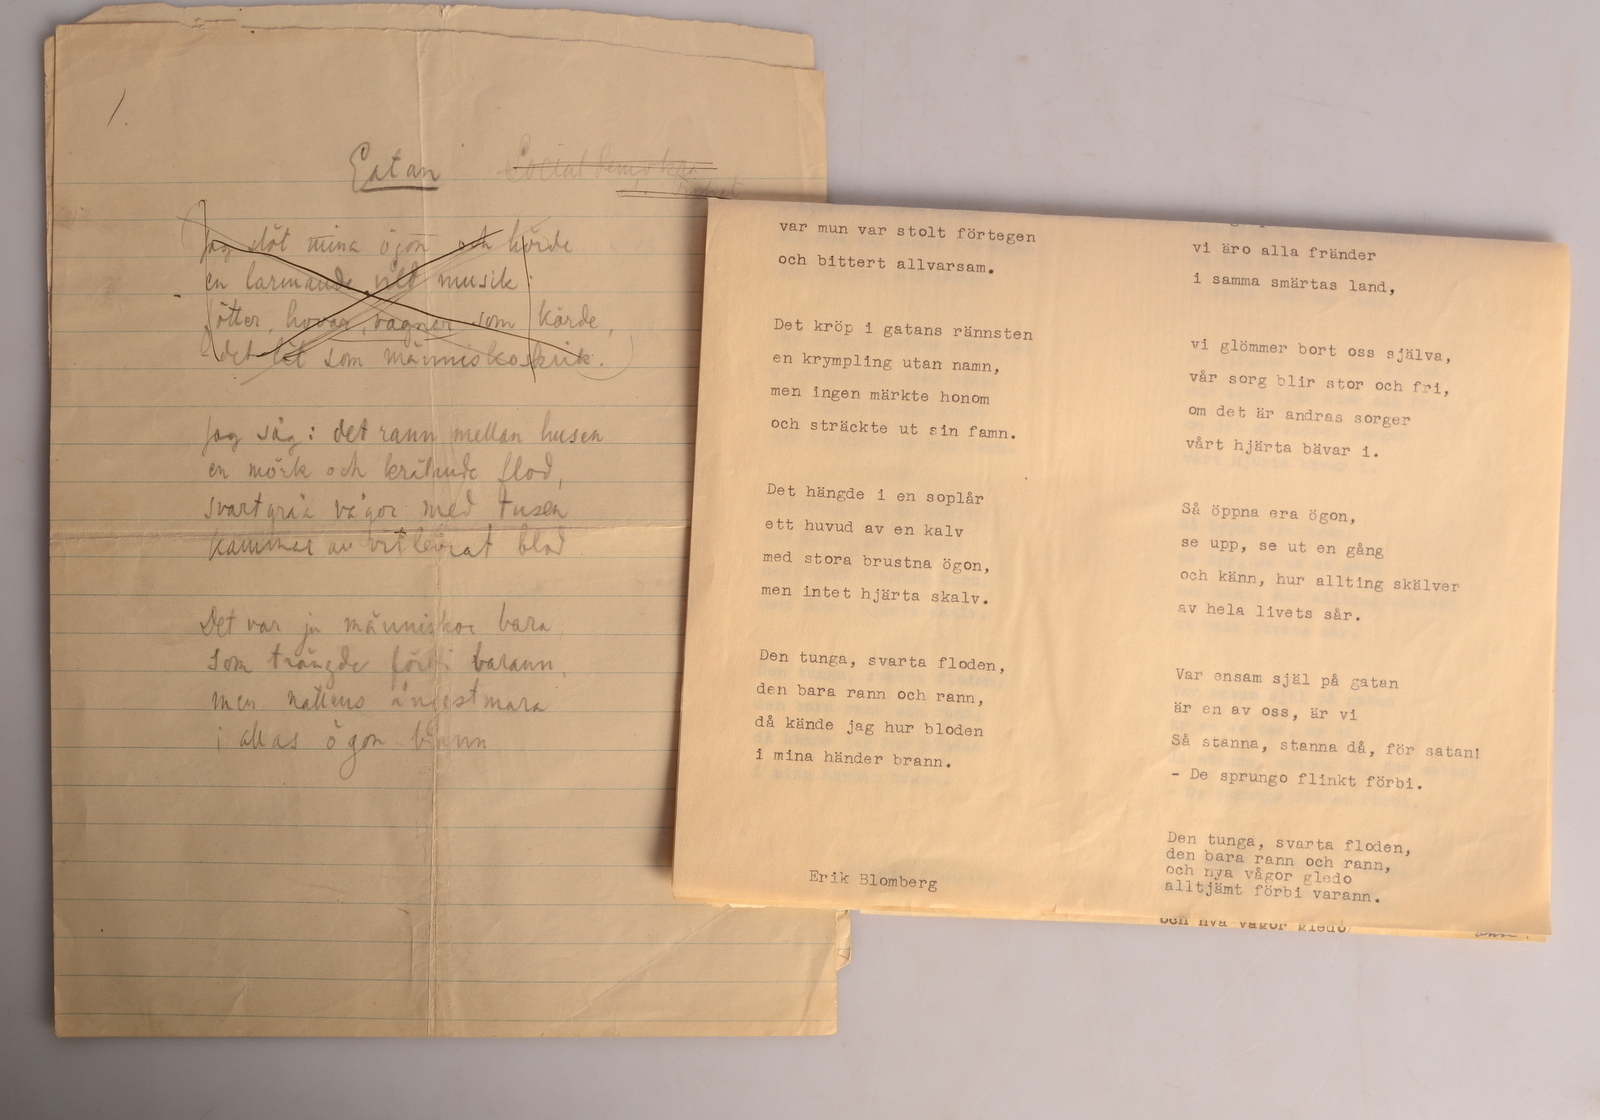 1.
Gatan
Socialdemokra
Jag slöt mina ögon och hörde
en larmande vild musik:
fötter, hovar, vagnar som körde,
det lät som människoskrik.)
Jag såg: det rann mellan husen
en mörk och krälande flod,
svartgråa vågor med tusen
kammar av vitlevrat blod
Det var ju människor bara,
som trängde förbi varann,
men nattens ångestmara
i allas ögon brann
var mun var stolt förtegen
och bittert allvarsam.
Det kröp i gatans rännsten
en krympling utan namn,
men ingen märkte honom
och sträckte ut sin famn.
Det hängde i en soplår
ett huvud av en kalv
med stora brustna ögon,
men intet hjärta skalv.
Den tunga, svarta floden,
den bara rann och rann,
då kände jag hur bloden
i mina händer brann.
Erik Blomberg
vi äro alla fränder
i samma smärtas land,
vi glömmer bort oss själva,
vår sorg blir stor och fri,
om det är andras sorger
vårt hjärta bävar i.
Så öppna era ögon,
se upp, se ut en gång
och känn, hur allting skälver
av hela livets sår.
Var ensam själ på gatan
är en av oss, är vi
Så stanna, stanna då, för satan!
- De sprungo flinkt förbi.
Den tunga, svarta floden,
den bara rann och rann,
och nya vågor gledo
alltjämt förbi varann.
och nya vågor gledo